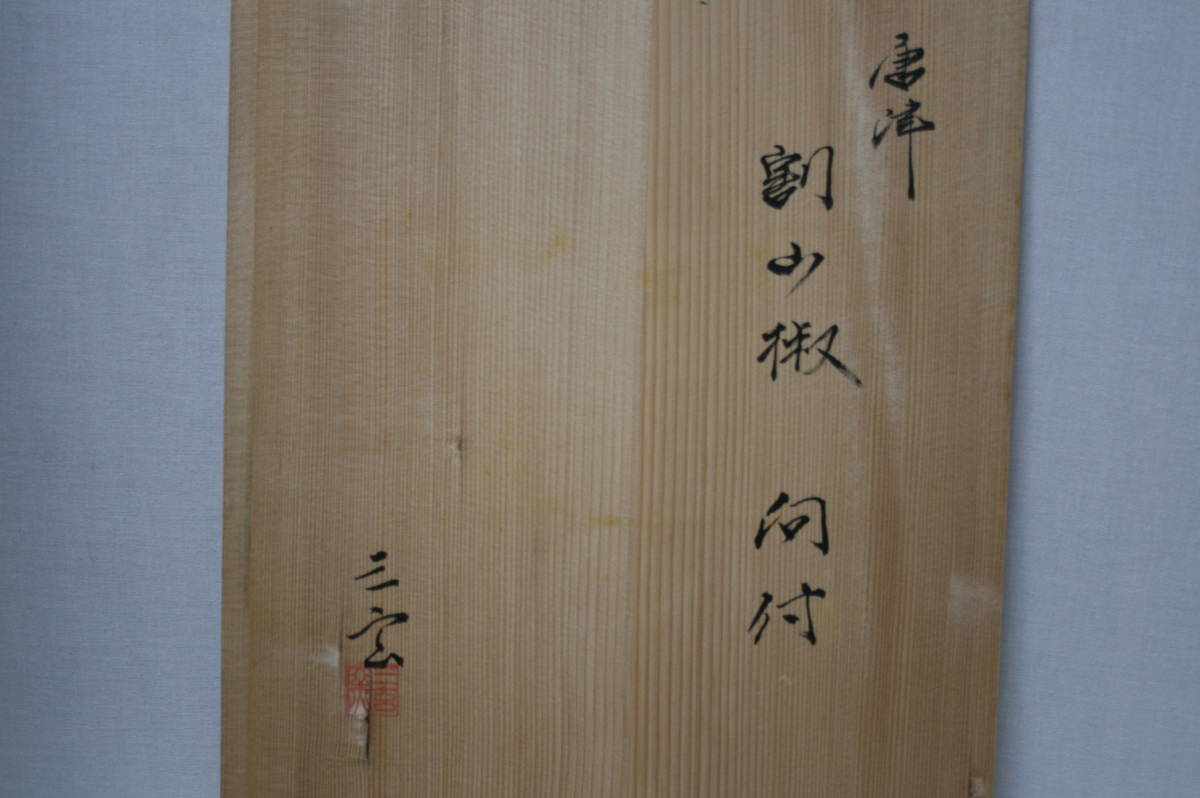 唐津
割山椒 向付
三宝